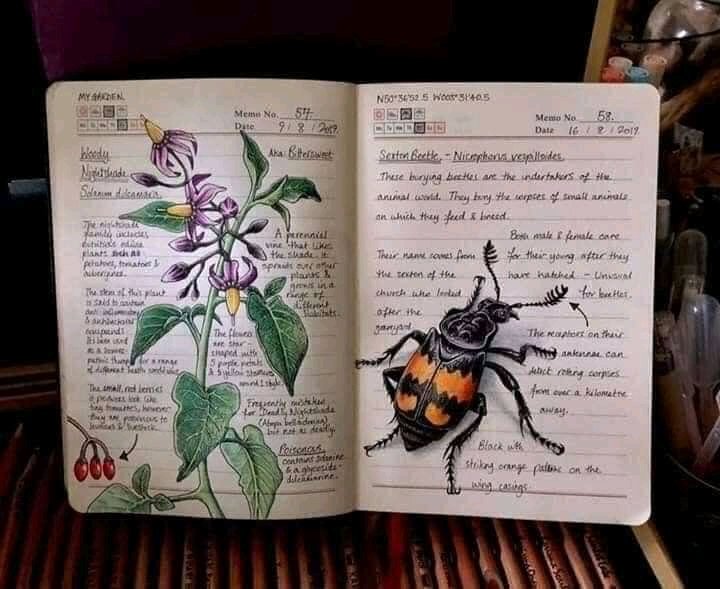 MY GARDEN.
Memo No. 57.
Date 9 / 8 / 2019.
Woody
Nightshade
Solanum dulcamara.
Aka: Bittersweet
The nightshade
family includes
edible
plants such as
potatoes, tomatoes &
aubergines.
A perennial
vine that likes
the shade. It
sprouts over other
plants &
grows in a
range of
different
habitats.
The stem of this plant
is said to contain
anti inflammatory
& antibacterial
compounds.
Its been used
as a
for a range
of different health conditions.
The flowers
are star
shaped with
5 purple petals
& yellow stamens
around 1 style.
The small, red berries
it produces look like
tiny tomatoes, however
they are poisonous to
humans & livestock.
Frequently mistaken
for Deadly Nightshade
(Atropa belladonna),
but not as deadly.
Poisonous
contains solanine
& a glycoside -
dulcamarine.
N50°36'52.5 W003°31'40.5
Memo No. 58.
Date 16 / 8 / 2019
Sexton Beetle. - Nicrophorus vespilloides.
These burying beetles are the undertakers of the
animal world. They bury the corpses of small animals
on which they feed & breed.
Both male & female care
for their young after they
have hatched - Unusual
for beetles.
Their name comes from
the sexton of the
church who looked
after the
graveyard
The receptors on their
antennae can
detect rotting corpses
from over a kilometre
away.
Black with
striking orange patterns on the
wing casings.